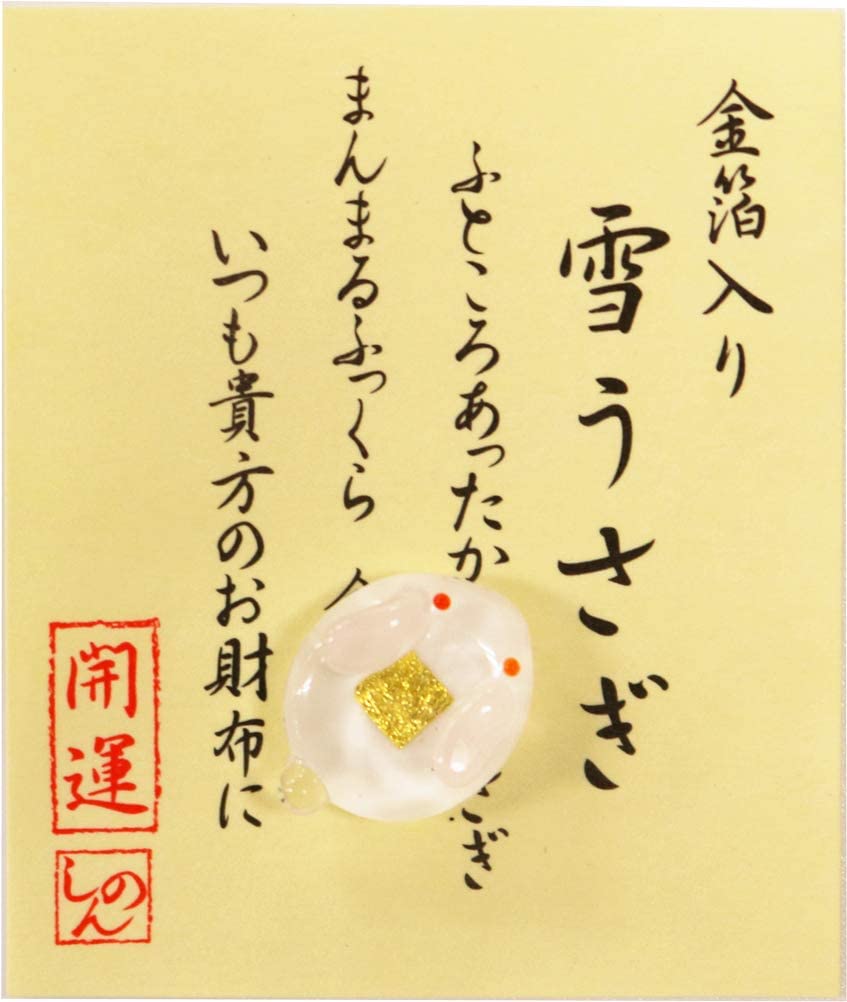 金箔入り
雪うさぎ
ふところあったか
さぎ
まんまるふっくら
いつも貴方のお財布に
開運
しのん